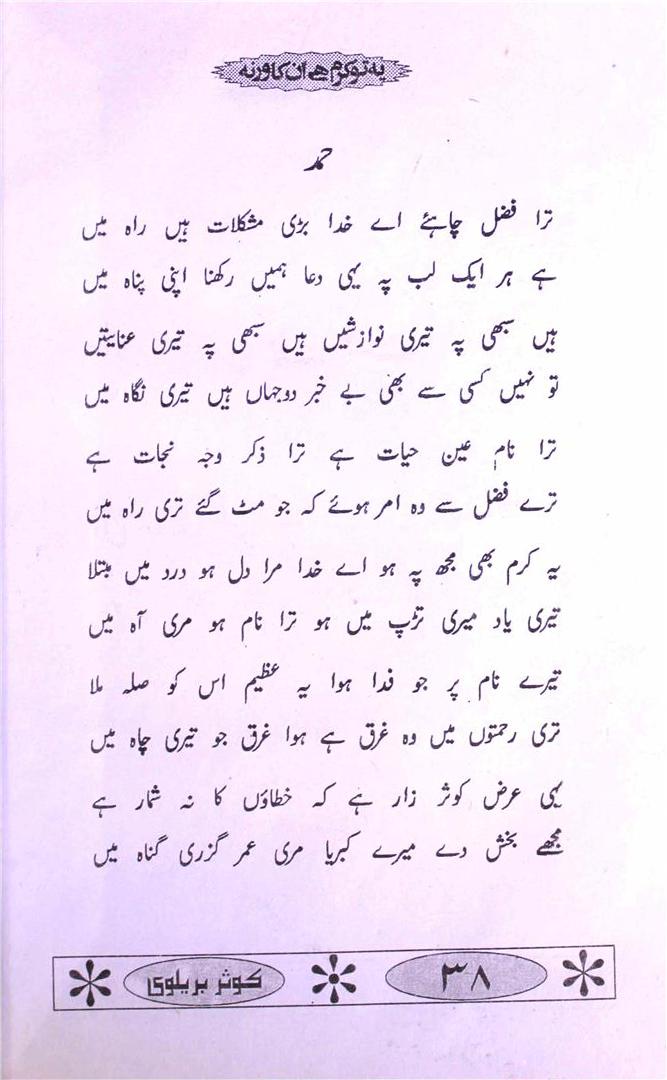 یہ تو کرم ہے ان کا ورنہ
حمد
ترا فضل چاہئے اے خدا بڑی مشکلات ہیں راہ میں
ہے ہر ایک لب پہ یہی دعا ہمیں رکھنا اپنی پناہ میں
ہیں سبھی پہ تیری نوازشیں ہیں سبھی پہ تیری عنایتیں
تو نہیں کسی سے بھی بے خبر دوجہاں ہیں تیری نگاہ میں
ترا نام عین حیات ہے ترا ذکر وجہ نجات ہے
ترے فضل سے وہ امر ہوئے کہ جو مٹ گئے تری راہ میں
یہ کرم بھی مجھ پہ ہو اے خدا مرا دل ہو درد میں مبتلا
تیری یاد میری تڑپ میں ہو ترا نام ہو مری آہ میں
تیرے نام پر جو فدا ہوا یہ عظیم اس کو صلہ ملا
تری رحمتوں میں وہ غرق ہے ہوا غرق جو تیری چاہ میں
یہی عرض کوثر زار ہے کہ خطاؤں کا نہ شمار ہے
مجھے بخش دے میرے کبریا مری عمر گزری گناہ میں
۳۸
کوثر بریلوی